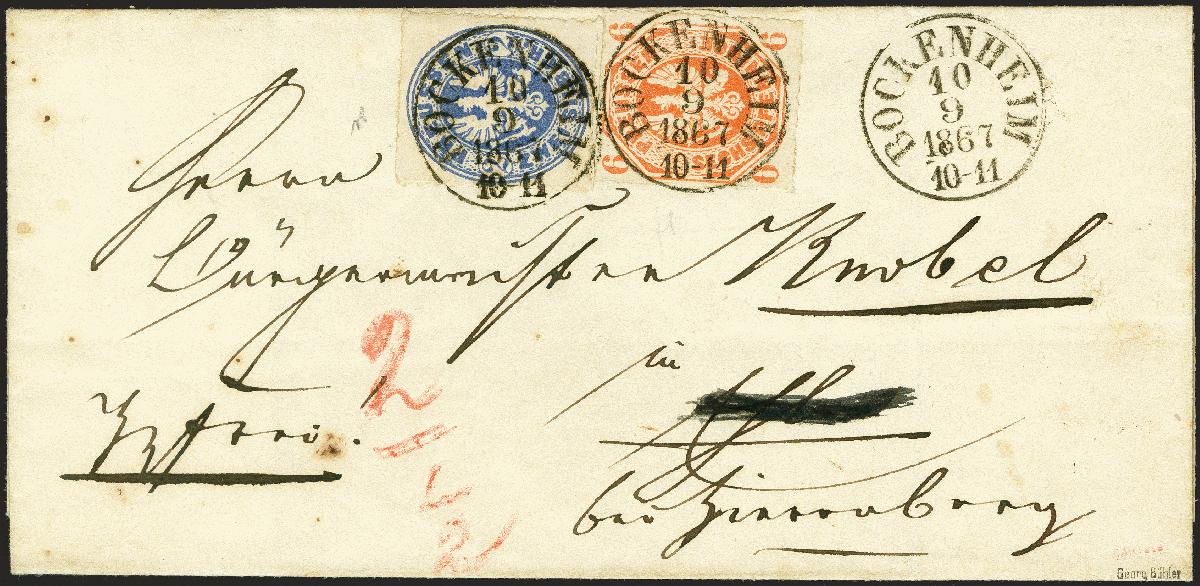 BOCKENHEIM
10
9
1867
10-11
6 6
BOCKENHEIM
10
9
1867
10-11
6 6
BOCKENHEIM
10
9
1867
10-11
Herrn
Bürgermeister Knobel
in
frei.
bei Zierenberg
2
2
Georg Bühler